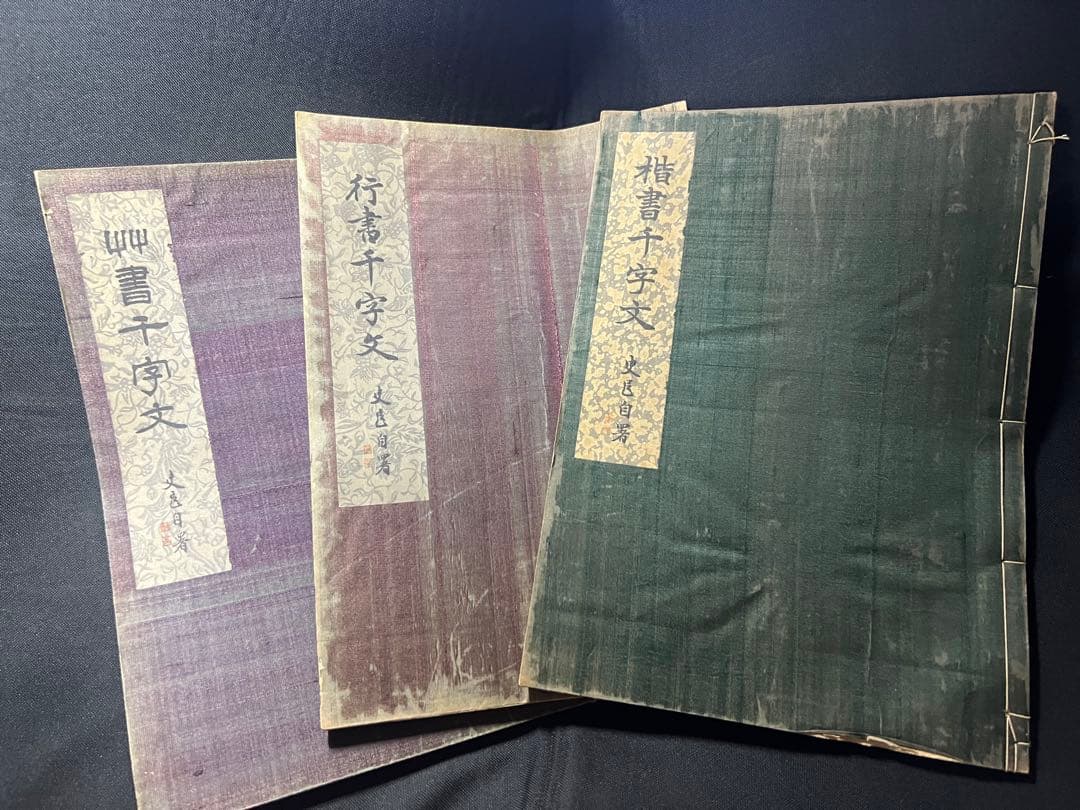 楷書千字文
史邑自署
行書千字文
史邑自署
艸書千字文
史邑自署